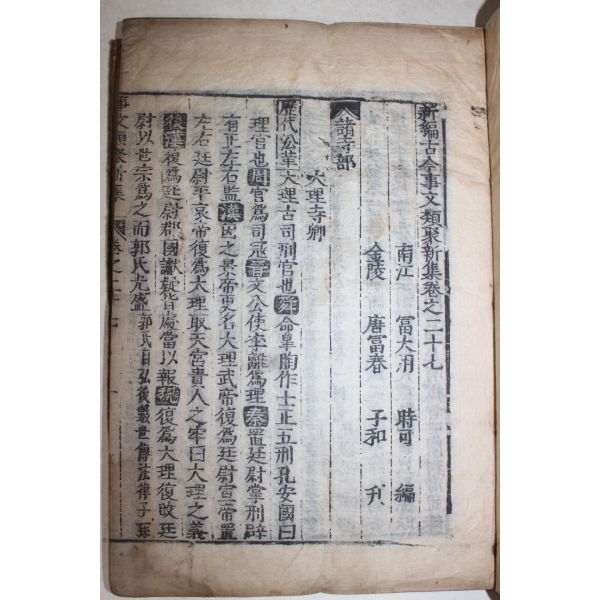 新編古今事文類聚新集卷之二十七
南江 富大用 時可 編
金陵 唐富春 子和
諸寺部
大理寺卿
歷代沿革大理古司刑官也舜命臯陶作士正五刑孔安國曰
理官也周官爲司寇晉文公使李離爲理秦置廷尉掌刑辟
有正左右監漢因之景帝更名大理武帝復爲廷尉宣帝置
左右廷尉平哀帝復爲大理取天官貴人之牢曰大理之義
後漢復爲廷尉郡國讞疑皆處當以報魏復爲大理復改廷
尉以世宗爲之而郭氏尤盛郭氏自弘後數世傳法律子孫
事文類聚新集 卷之二十七 一